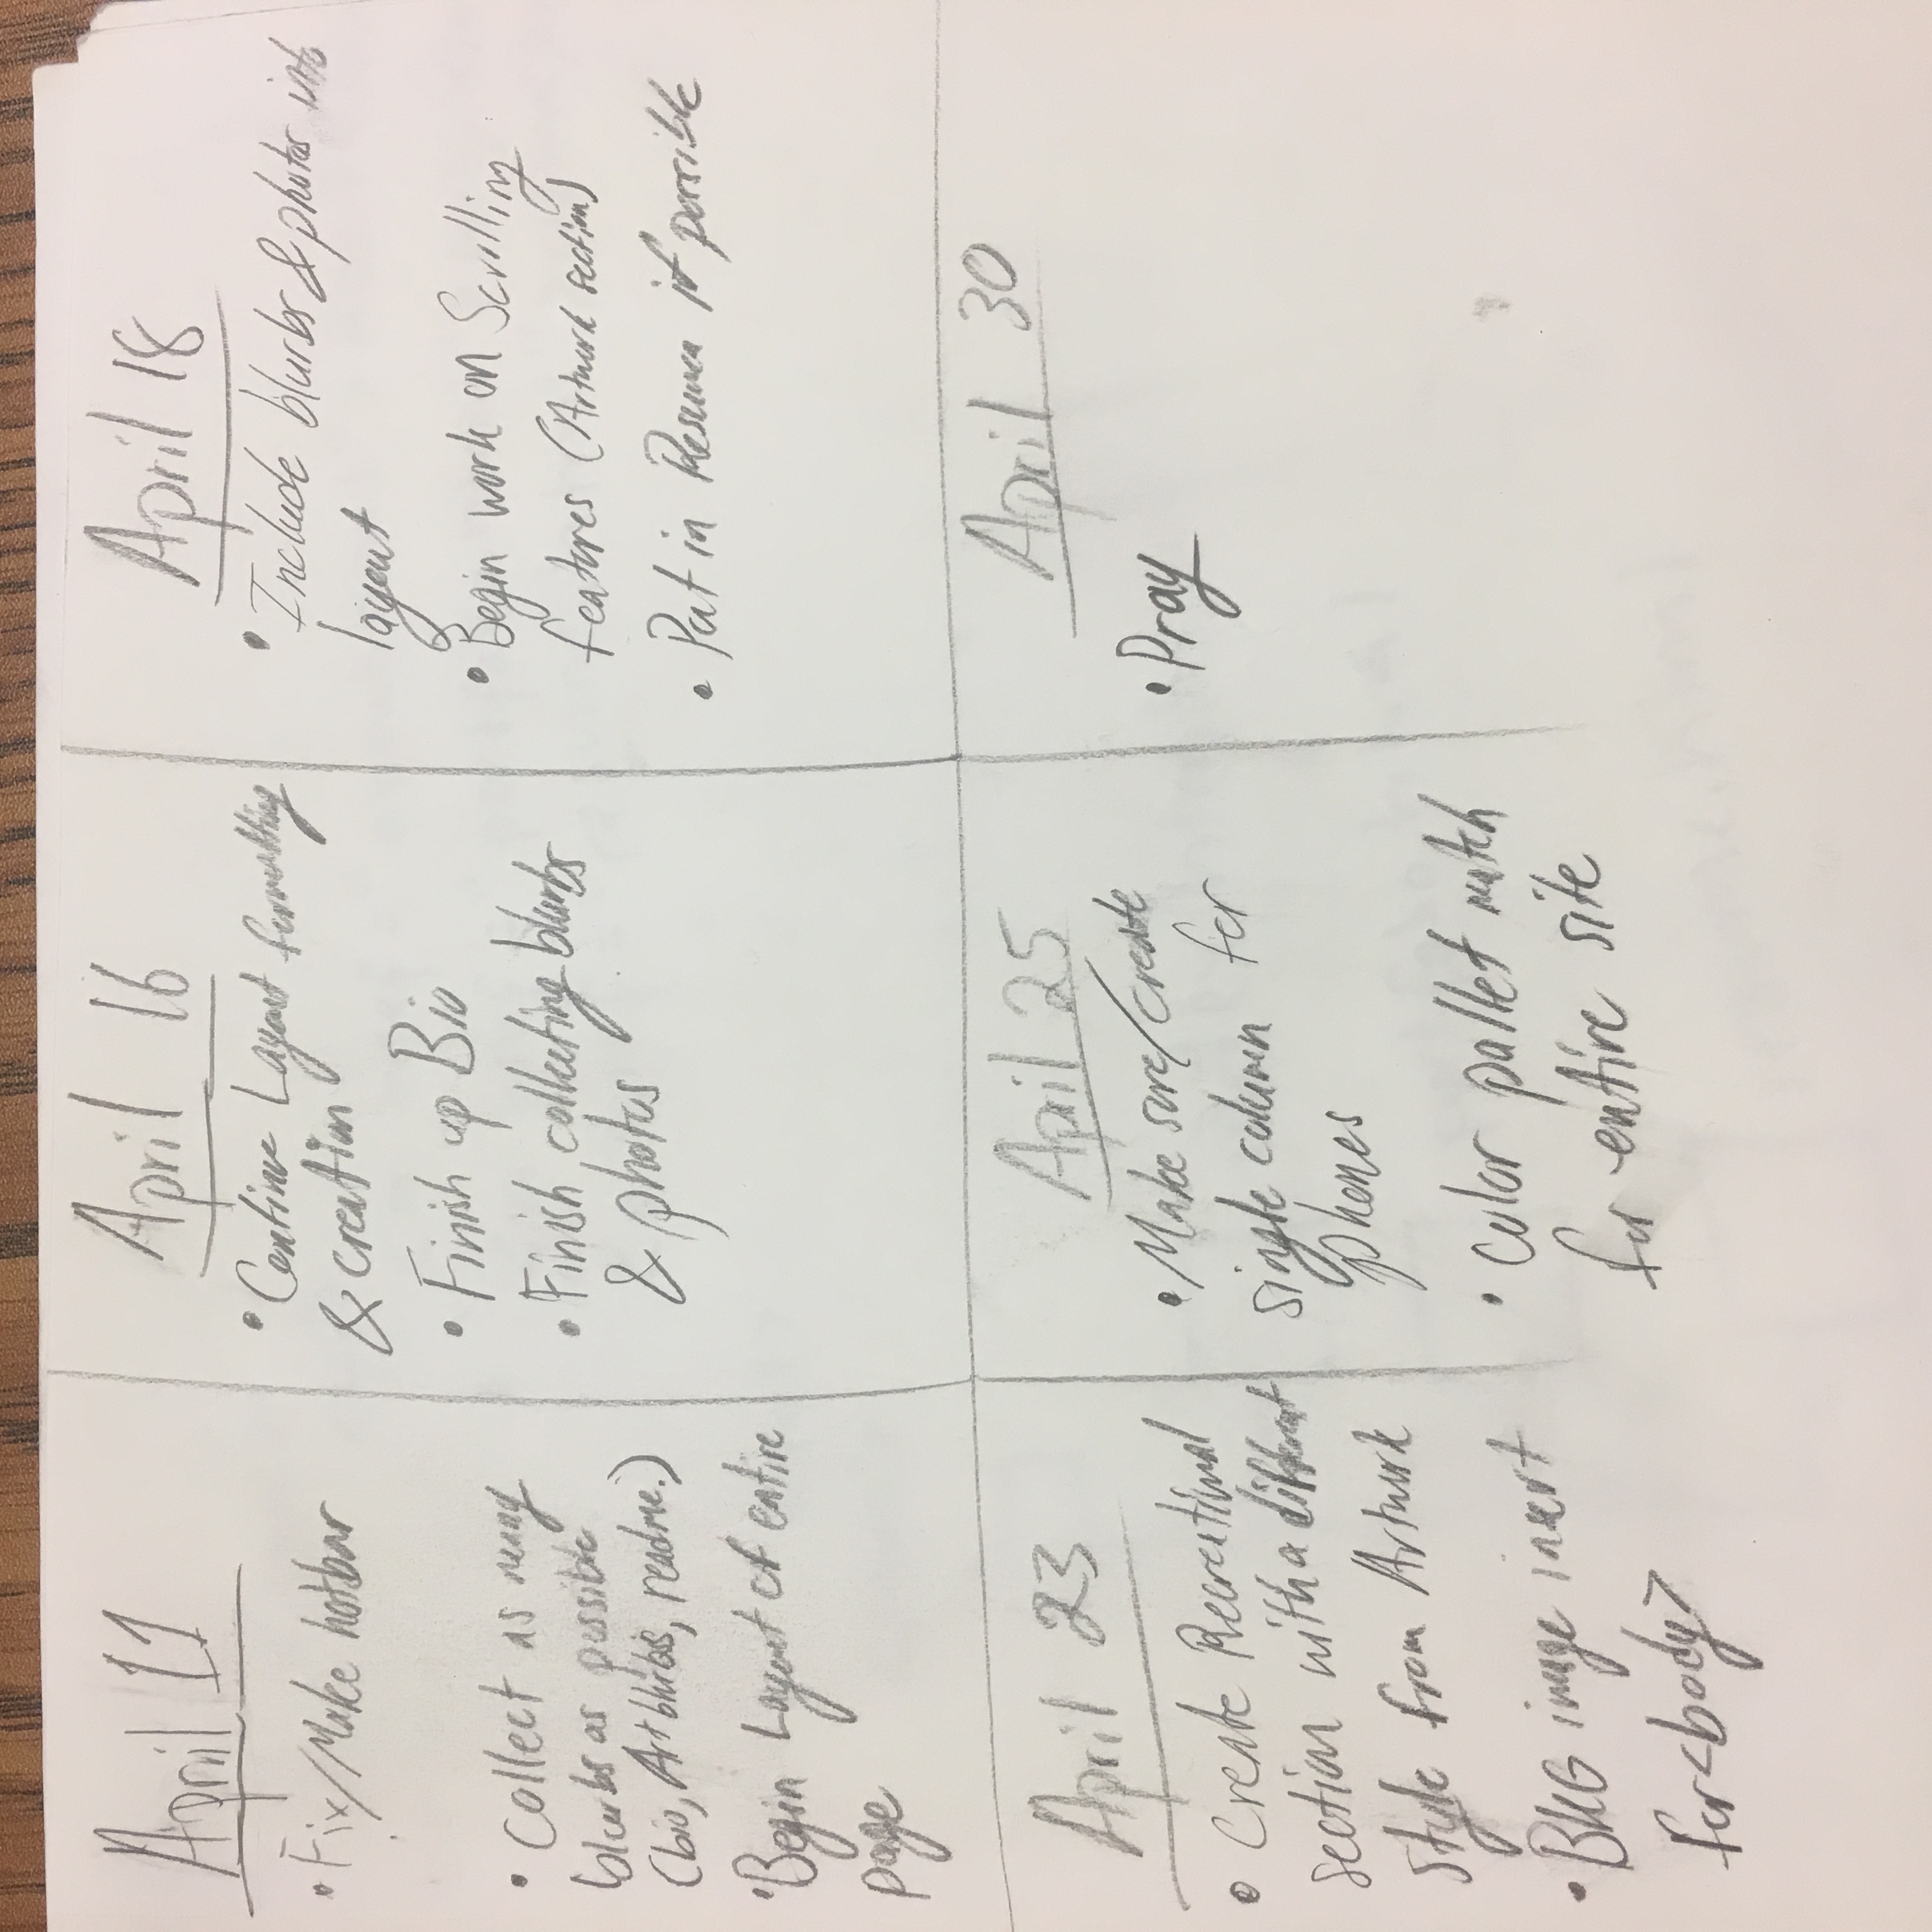 April 11
• Fix/Make hotbar
• Collect as many
blurbs as possible
(bio, Art blurbs, readme.)
• Begin Layout of entire
page
April 16
• Continue Layout formatting
& creation
• Finish up Bio
• Finish collecting blurbs
& photos
April 18
• Include blurbs & photos into
layout
• Begin work on Scrolling
features (Artwork section)
• Put in Resume if possible
April 23
• Create Recreational
section with a different
style from Artwork
• BKG image insert
for <body>
April 25
• Make sure/create
single column for
phones
• Color pallet match
for entire site
April 30
• Pray